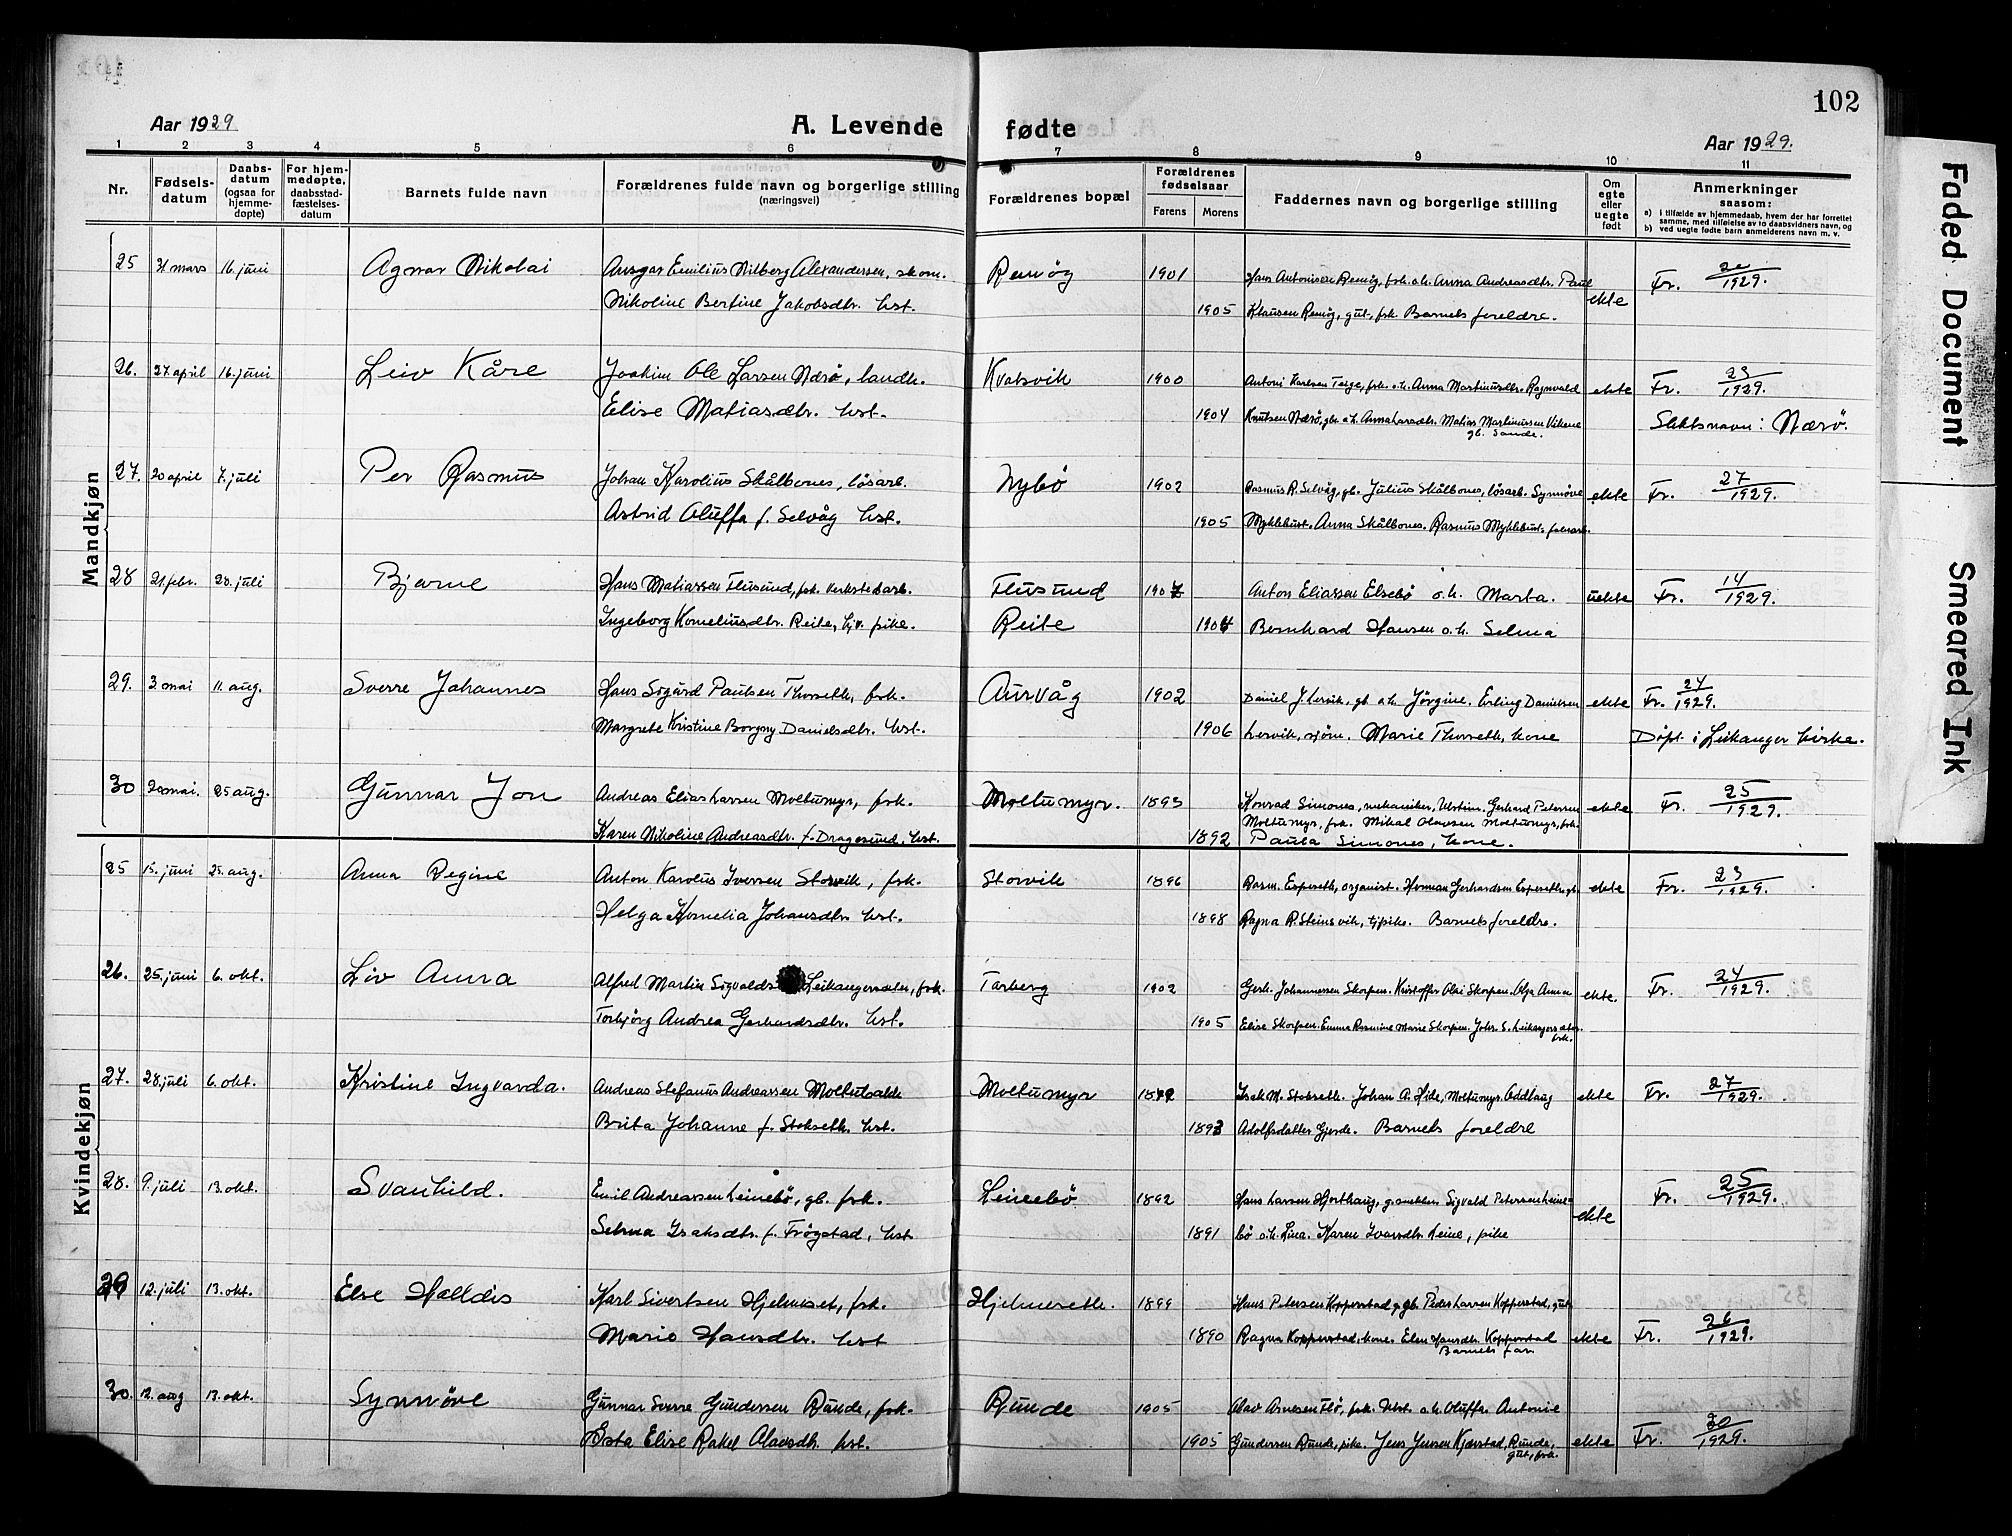 102
Aar 1929
A. Levende fødte
Aar 1929.
1 2 3 4 5 6 7 8 9 10 11
Nr.
Fødsels-
datum
Daabs-
datum
(ogsaa for
hjemme-
døpte)
For hjem-
medøpte,
daabsstad-
fæstelses-
datum
Barnets fulde navn
Forældrenes fulde navn og borgerlige stilling
(næringsvei)
Forældrenes bopæl
Forældrenes
fødselsaar
Farens
Morens
Faddernes navn og borgerlige stilling
Om
egte
eller
uegte
født
Anmerkninger
saasom:
a) i tilfælde av hjemmedaab, hvem der har forrettet
samme, med tilføielse av to daabsvidners navn, og
b) ved uegte fødte barn anmelderens navn m. v.
Mandkjøn
25 31 mars 16. juni Agnar Nikolai Ansgar Emilius Vilberg Alexandersen, skom. Remøy 1901 Hans Antonisen Remøy, fsk. o.h. Anna Andreasdtr. Paul ekte Fr. 22/1929.
Nikoline Bertine Jakobsdtr. hst. 1905 Klausen Remøy, gut, fsk. Barnets foreldre.
26. 27 april 16. juni Leiv Kåre Joakim Ole Larsen Nærö, landh. Kvalsvik 1900 Antoni Karlsen Teige, fsk. o.h. Anna Martinusdtr. Ragnvald ekte Fr. 23/1929.
Elise Matiasdtr. hst. 1904 Knutsen Nærö, gbr. o.h. Anna Larsdtr. Matias Martinussen Vikene Slektsnavn: Nærö.
gb. Sande.
27. 20 april 7. juli Per Rasmus Johan Karolius Skålbones, lösarb. Nybö 1902 Rasmus R. Selvåg, gb. Julius Skålbones, lösarb. Synnöve ekte Fr. 27/1929.
Astrid Oluffa f. Selvåg hst. 1905 Myklebust. Anna Skålbones. Rasmus Myklebust, fabrarb.
28 21. febr. 28. juli Bjarne Hans Matiassen Flusund, fsk. verkstedarb. Flusund 1907 Anton Eliassen Elsebö o.h. Marta. uekte Fr. 14/1929.
Ingeborg Korneliusdtr. Reite, tjv. pike. Reite 1904 Bernhard Hansen o.h. Selma
29. 3 mai 11. aug. Sverre Johannes Hans Sigurd Paulsen Thorseth, fsk. Aurvåg 1902 Daniel J. Lervik, gb o.h. Jörgine. Erling Danielsen ekte Fr. 24/1929.
Margrete Kristine Borgny Danielsdtr. hst. 1906 Lervik, sjöm. Marie Thorseth, kone Döpt i Leikanger kirke.
30 20 mai. 25 aug. Gunnar Jon Andreas Elias Larsen Moltumyr, fsk. Moltumyr. 1893 Konrad Simones, mekaniker, Ulstein. Gerhard Petersen ekte Fr. 25/1929.
Moltumyr, fsk. Mikal Olavsen Moltumyr, fsk.
Karen Nikoline Andreasdtr. f. Dragesund. hst. 1892 Paula Simones, kone.
Kvindekjøn
25 15. juni 25. aug. Anna Regine Anton Karolus Iversen Storvik, fsk. Storvik 1896 Rasm. Espeseth, organist. Herman Gerhardsen Espeseth, gb. ekte Fr. 23/1929.
Helga Kornelia Johansdtr. hst. 1898 Ragna R. Steinsvik, tjpike. Barnets foreldre.
26. 25. juni 6. okt. Liv Anna Alfred Martin Sigvalds Leikangersæter, fsk. Tarberg 1902 Gerh. Johannessen Skorpen. Kristoffer Olai Skorpen. Olga Anna ekte. Fr. 24/1929.
Torbjörg Andrea Gerhardsdtr. hst. 1905 Elise Skorpen. Emma Rasmine Marie Skorpen. Johs. S. Leikangersæter
fsk.
27. 28. juli 6. okt. Kristine Ingvarda. Andreas Stefanus Andreassen Moltubakk Moltumyr Isak M. Stokseth. Johan A. Hide, Moltumyr. Oddlaug ekte Fr. 27/1929.
Brita Johanne f. Stokseth. hst. 1893 Adolfsdatter Gjerde. Barnets foreldre
28. 9. juli 13. okt. Svanhild. Emil Andreassen Leinebö, gb. fsk. Leinebö 1892 Hans Larsen Hjorthaug, g.snekker. Sigvald Petersen Leine- ekte Fr. 25/1929.
Selma Isaksdtr. f. Frögstad, hst 1891 bö o.h. Lina. Karen Ivarsdtr. Leine, pike
29 12. juli 13. okt. Else Halldis Karl Sivertsen Hjelmeset, fsk. Hjelmeseth. 1899 Hans Petersen Kopperstad, gb. Peder Larsen Kopperstad, gut
Marie Hansdtr. hst 1890 Ragna Kopperstad, kone. Elen Hansdtr. Kopperstad ekte Fr. 26/1929.
Barnets far
30. 12. aug 13. okt. Synnöve Gunnar Sverre Gundersen Runde, fsk. Runde 1905 Olav Arnesen Flö, fsk. Ulst. o.h. Oluffa. Antonie
Asta Elise Rakel Olavsdtr. hst. 1905 Gundersen Runde, pike. Jens Jensen Kjerstad, Runde, ekte Fr. 30/1929.
gut, fsk.
Faded Document
Smeared Ink